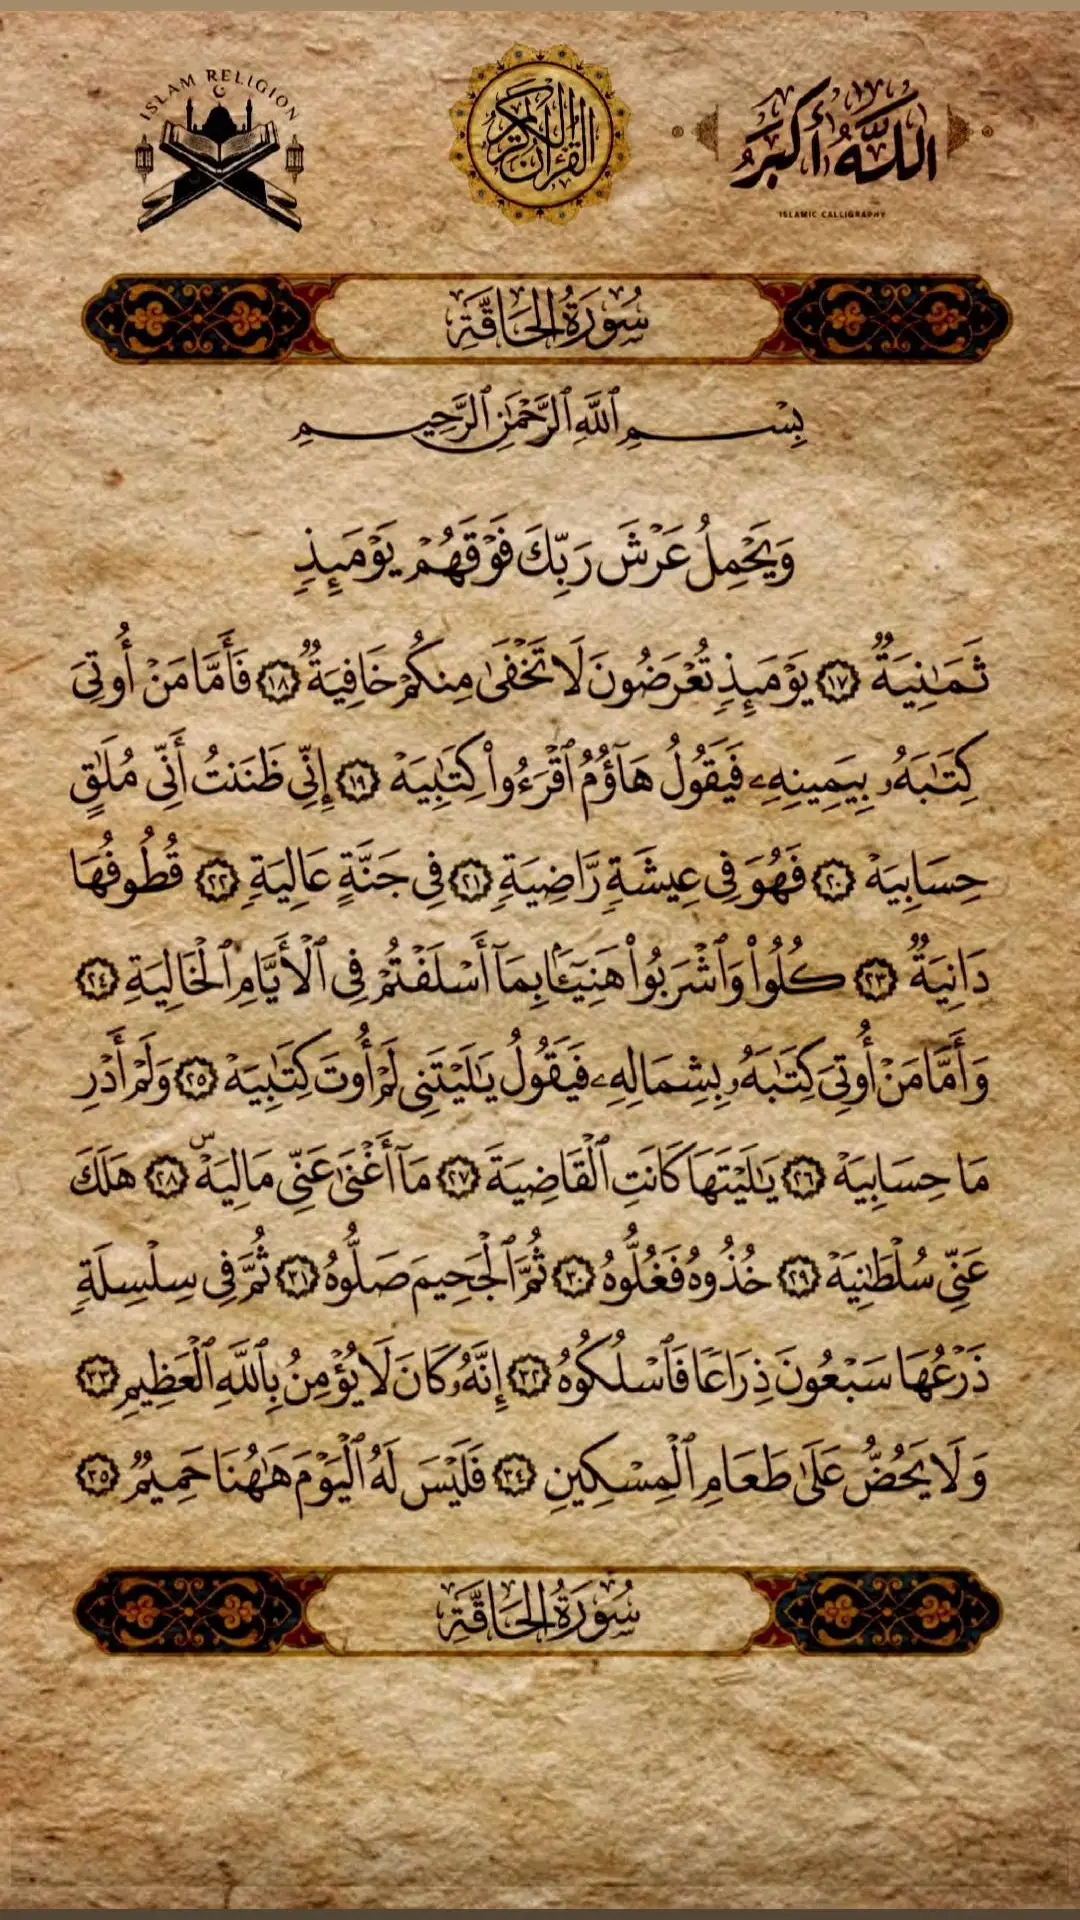 ISLAM RELIGION
القرآن الكريم
اللَّهُ أَكْبَرُ
ISLAMIC CALLIGRAPHY
سُورَةُ الحَاقَّةِ
بِسْمِ ٱللَّهِ ٱلرَّحْمَٰنِ ٱلرَّحِيمِ
وَيَحْمِلُ عَرْشَ رَبِّكَ فَوْقَهُمْ يَوْمَئِذٍ
ثَمَٰنِيَةٌ ١٧ يَوْمَئِذٍ تُعْرَضُونَ لَا تَخْفَىٰ مِنكُمْ خَافِيَةٌ ١٨ فَأَمَّا مَنْ أُوتِىَ
كِتَٰبَهُۥ بِيَمِينِهِۦ فَيَقُولُ هَآؤُمُ ٱقْرَءُوا۟ كِتَٰبِيَهْ ١٩ إِنِّى ظَنَنتُ أَنِّى مُلَٰقٍ
حِسَابِيَهْ ٢٠ فَهُوَ فِى عِيشَةٍ رَّاضِيَةٍ ٢١ فِى جَنَّةٍ عَالِيَةٍ ٢٢ قُطُوفُهَا
دَانِيَةٌ ٢٣ كُلُوا۟ وَٱشْرَبُوا۟ هَنِيٓـًٔۢا بِمَآ أَسْلَفْتُمْ فِى ٱلْأَيَّامِ ٱلْخَالِيَةِ ٢٤
وَأَمَّا مَنْ أُوتِىَ كِتَٰبَهُۥ بِشِمَالِهِۦ فَيَقُولُ يَٰلَيْتَنِى لَمْ أُوتَ كِتَٰبِيَهْ ٢٥ وَلَمْ أَدْرِ
مَا حِسَابِيَهْ ٢٦ يَٰلَيْتَهَا كَانَتِ ٱلْقَاضِيَةَ ٢٧ مَآ أَغْنَىٰ عَنِّى مَالِيَهْۜ ٢٨ هَلَكَ
عَنِّى سُلْطَٰنِيَهْ ٢٩ خُذُوهُ فَغُلُّوهُ ٣٠ ثُمَّ ٱلْجَحِيمَ صَلُّوهُ ٣١ ثُمَّ فِى سِلْسِلَةٍ
ذَرْعُهَا سَبْعُونَ ذِرَاعًا فَٱسْلُكُوهُ ٣٢ إِنَّهُۥ كَانَ لَا يُؤْمِنُ بِٱللَّهِ ٱلْعَظِيمِ ٣٣
وَلَا يَحُضُّ عَلَىٰ طَعَامِ ٱلْمِسْكِينِ ٣٤ فَلَيْسَ لَهُ ٱلْيَوْمَ هَٰهُنَا حَمِيمٌ ٣٥
سُورَةُ الحَاقَّةِ